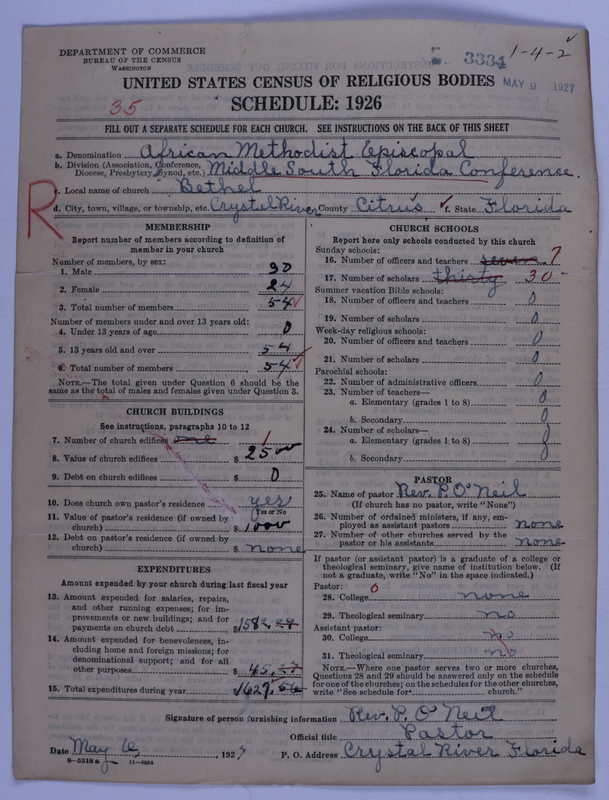 DEPARTMENT OF COMMERCE
BUREAU OF THE CENSUS
WASHINGTON
3334
1-4-2
UNITED STATES CENSUS OF RELIGIOUS BODIES
MAY 9 1927
35
SCHEDULE: 1926
FILL OUT A SEPARATE SCHEDULE FOR EACH CHURCH. SEE INSTRUCTIONS ON THE BACK OF THIS SHEET
a. Denomination African Methodist Episcopal
b. Division (Association, Conference, Diocese, Presbytery, Synod, etc.) Middle South Florida Conference.
R
c. Local name of church Bethel
d. City, town, village, or township, etc. Crystal River County Citrus f. State Florida
MEMBERSHIP
Report number of members according to definition of
member in your church
Number of members, by sex:
1. Male 30
2. Female 24
3. Total number of members 54
Number of members under and over 13 years old:
4. Under 13 years of age 0
5. 13 years old and over 54
6. Total number of members 54
NOTE.—The total given under Question 6 should be the
same as the total of males and females given under Question 3.
CHURCH BUILDINGS
See instructions, paragraphs 10 to 12
7. Number of church edifices one 1
8. Value of church edifices $ 2500
9. Debt on church edifices $ 0
10. Does church own pastor's residence yes
Yes or No
11. Value of pastor's residence (if owned by
church) $ 1000
12. Debt on pastor's residence (if owned by
church) $ none
EXPENDITURES
Amount expended by your church during last fiscal year
13. Amount expended for salaries, repairs,
and other running expenses; for im-
provements or new buildings; and for
payments on church debt $ 1582.
14. Amount expended for benevolences, in-
cluding home and foreign missions; for
denominational support; and for all
other purposes $ 45.
15. Total expenditures during year $ 1627.
CHURCH SCHOOLS
Report here only schools conducted by this church
Sunday schools:
16. Number of officers and teachers seven 7
17. Number of scholars thirty 30
Summer vacation Bible schools:
18. Number of officers and teachers 0
19. Number of scholars 0
Week-day religious schools:
20. Number of officers and teachers 0
21. Number of scholars 0
Parochial schools:
22. Number of administrative officers 0
23. Number of teachers—
a. Elementary (grades 1 to 8) 0
b. Secondary 0
24. Number of scholars—
a. Elementary (grades 1 to 8) 0
b. Secondary 0
PASTOR
25. Name of pastor Rev. P. O'Neil
(If church has no pastor, write "None")
26. Number of ordained ministers, if any, em-
ployed as assistant pastors none
27. Number of other churches served by the
pastor or his assistants none
If pastor (or assistant pastor) is a graduate of a college or
theological seminary, give name of institution below. (If
not a graduate, write "No" in the space indicated.)
Pastor: 0
28. College none
29. Theological seminary no
Assistant pastor:
30. College no
31. Theological seminary no
NOTE.—Where one pastor serves two or more churches,
Questions 28 and 29 should be answered only on the schedule
for one of the churches; on the schedules for the other churches,
write "See schedule for church."
Signature of person furnishing information Rev. P. O'Neil
Official title Pastor
Date May 6, 1927 P. O. Address Crystal River Florida
8-5518 a 11-9054